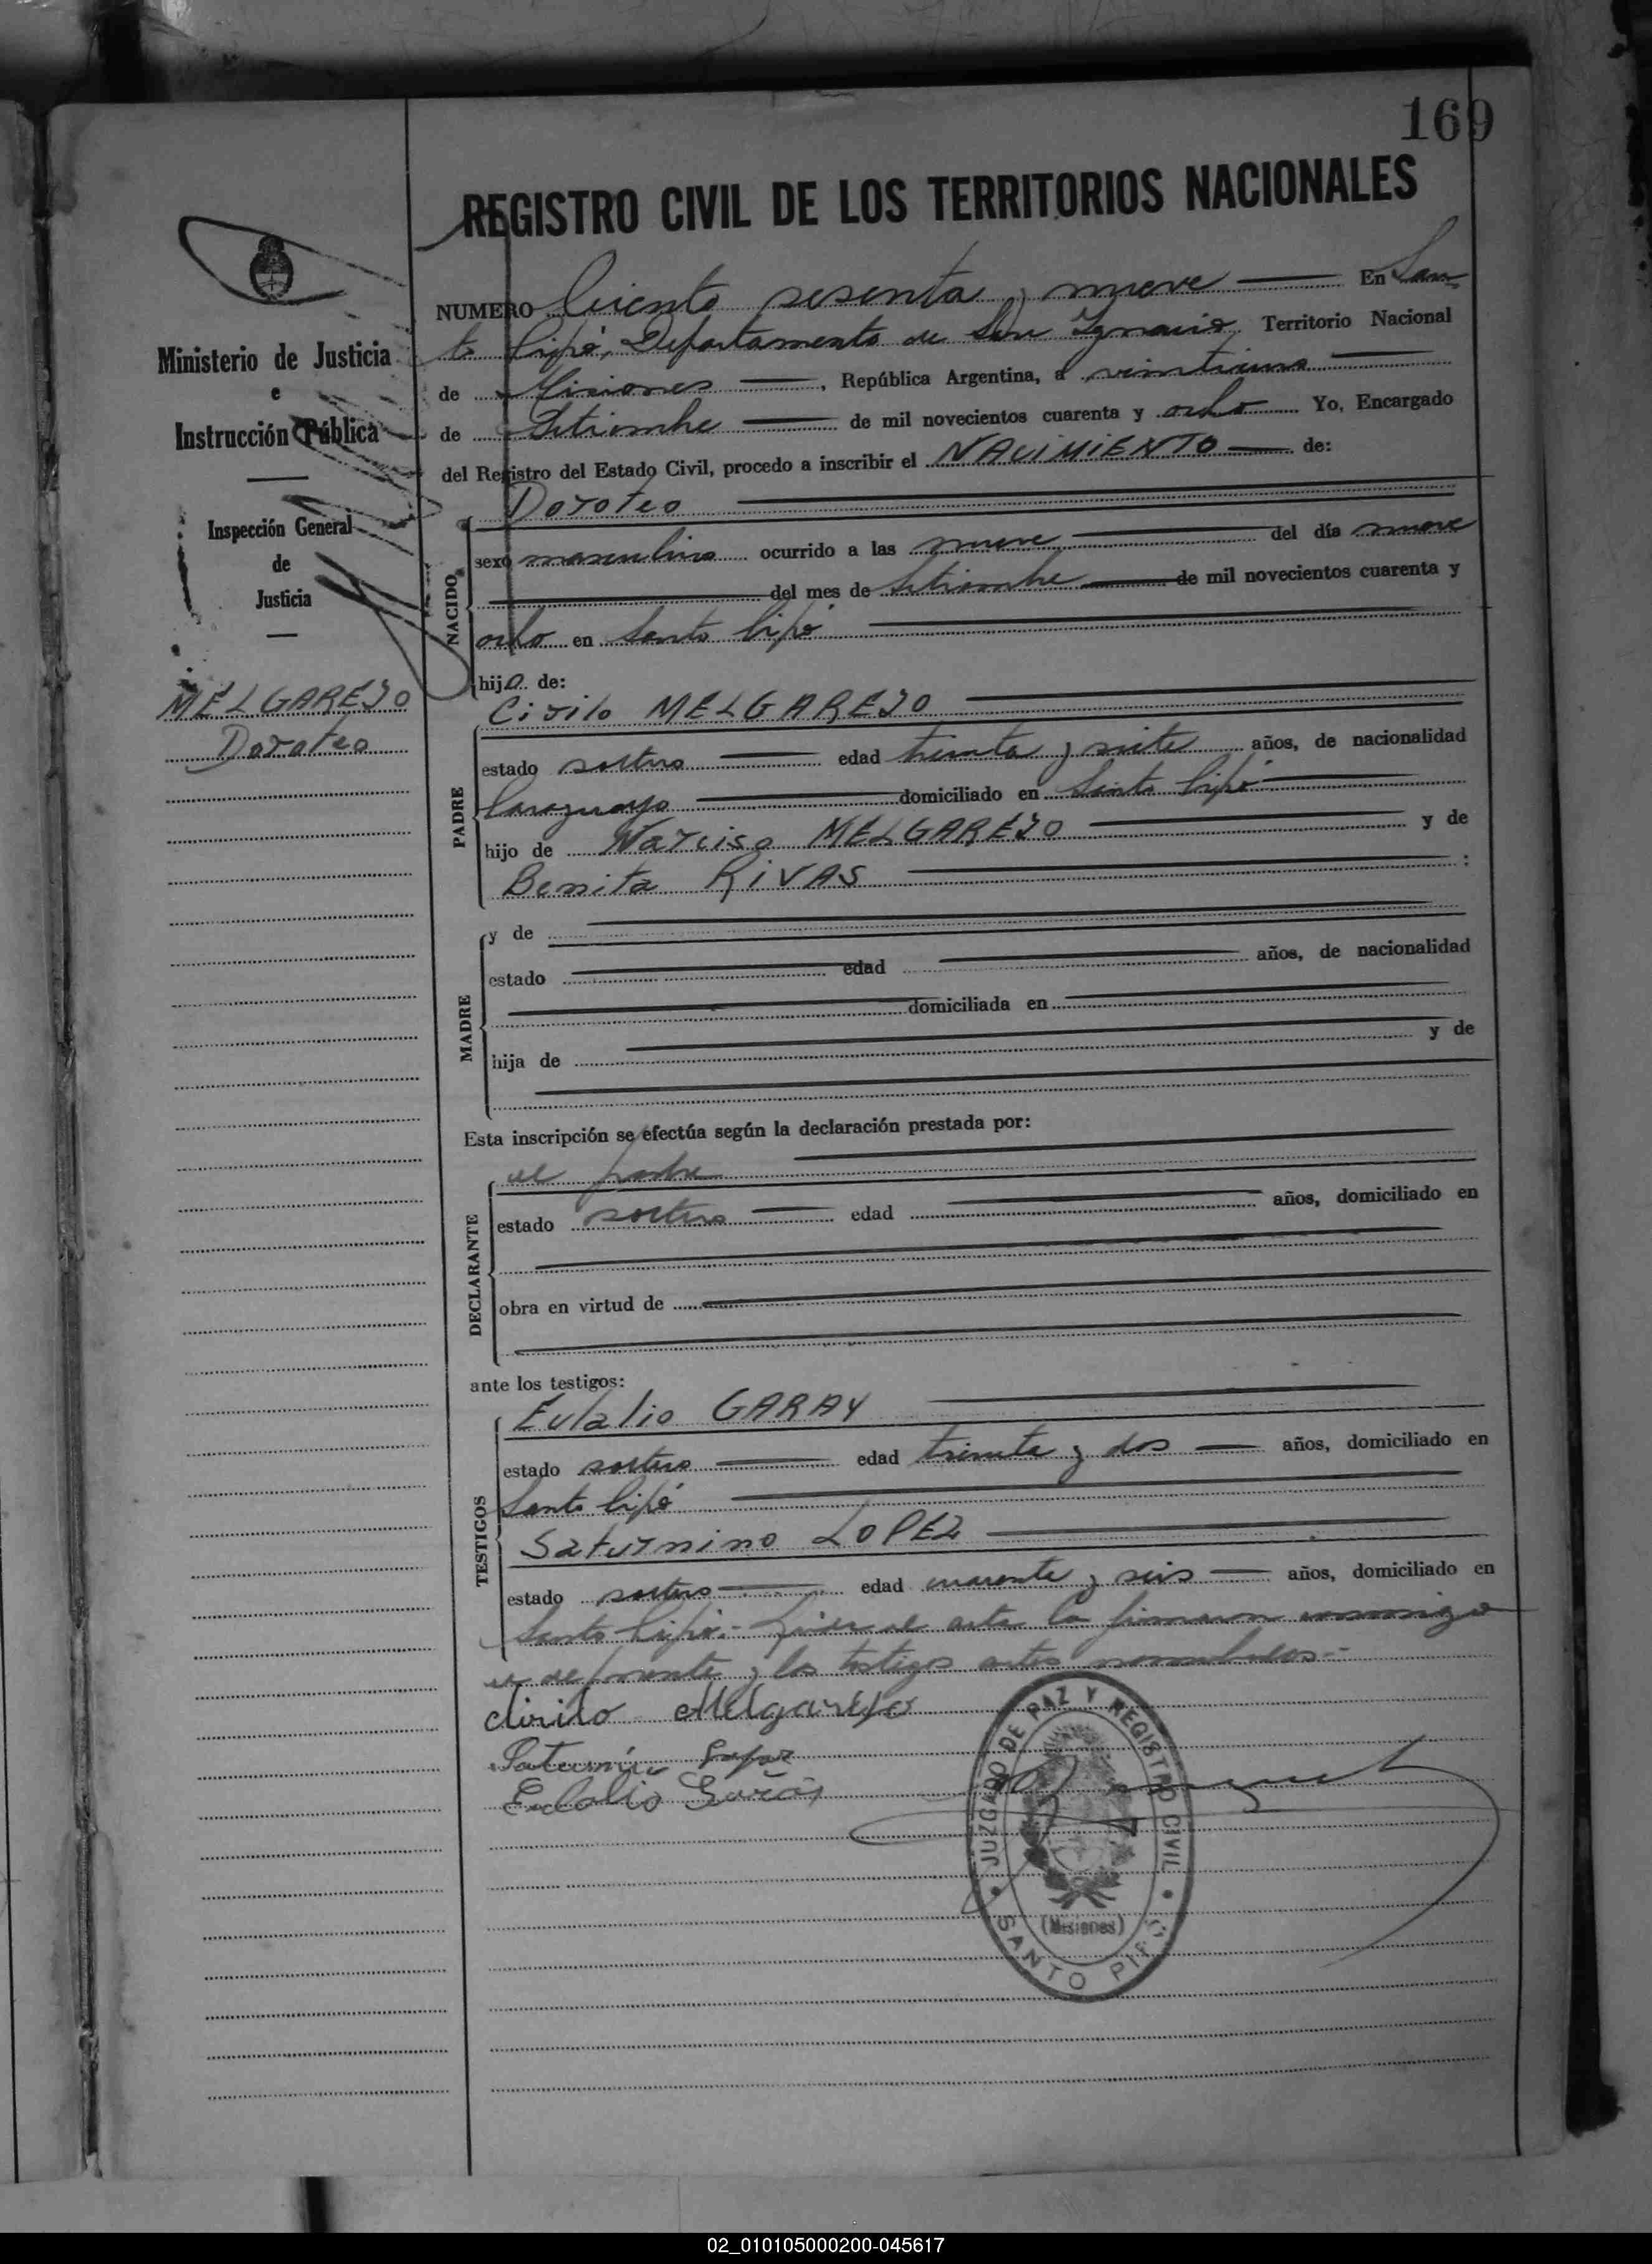 169
REGISTRO CIVIL DE LOS TERRITORIOS NACIONALES
Ministerio de Justicia
e
Instrucción Pública
Inspección General
de
Justicia
MELGAREJO
Doroteo
NUMERO Ciento sesenta y nueve En San
to Pipó, Departamento de San Ignacio. Territorio Nacional
de Misiones, República Argentina, a veintiuno
de Setiembre de mil novecientos cuarenta y ocho Yo, Encargado
del Registro del Estado Civil, procedo a inscribir el NACIMIENTO de:
NACIDO
Doroteo
sexo masculino ocurrido a las nueve del día nueve
del mes de Setiembre de mil novecientos cuarenta y
ocho en Santo Pipó
hijo de:
PADRE
Cirilo MELGAREJO
estado soltero edad treinta y siete años, de nacionalidad
Paraguayo domiciliado en Santo Pipó
hijo de Narciso MELGAREJO y de
Benita RIVAS :
MADRE
y de
estado edad años, de nacionalidad
domiciliada en
hija de y de
Esta inscripción se efectúa según la declaración prestada por:
DECLARANTE
el padre
estado soltero edad años, domiciliado en
obra en virtud de
ante los testigos:
TESTIGOS
Eulalio GARAY
estado soltero edad treinta y dos años, domiciliado en
Santo Pipó
Saturnino LOPEZ
estado soltero edad cuarenta y seis años, domiciliado en
Santo Pipó.- el acta la firmaron conmigo
el y los testigos antes nombrados.-
Cirilo Melgarejo
Saturnino Lopez
Eulalio Garay
JUZGADO DE PAZ Y REGISTRO CIVIL
(Misiones)
SANTO PIPÓ
02_010105000200-045617